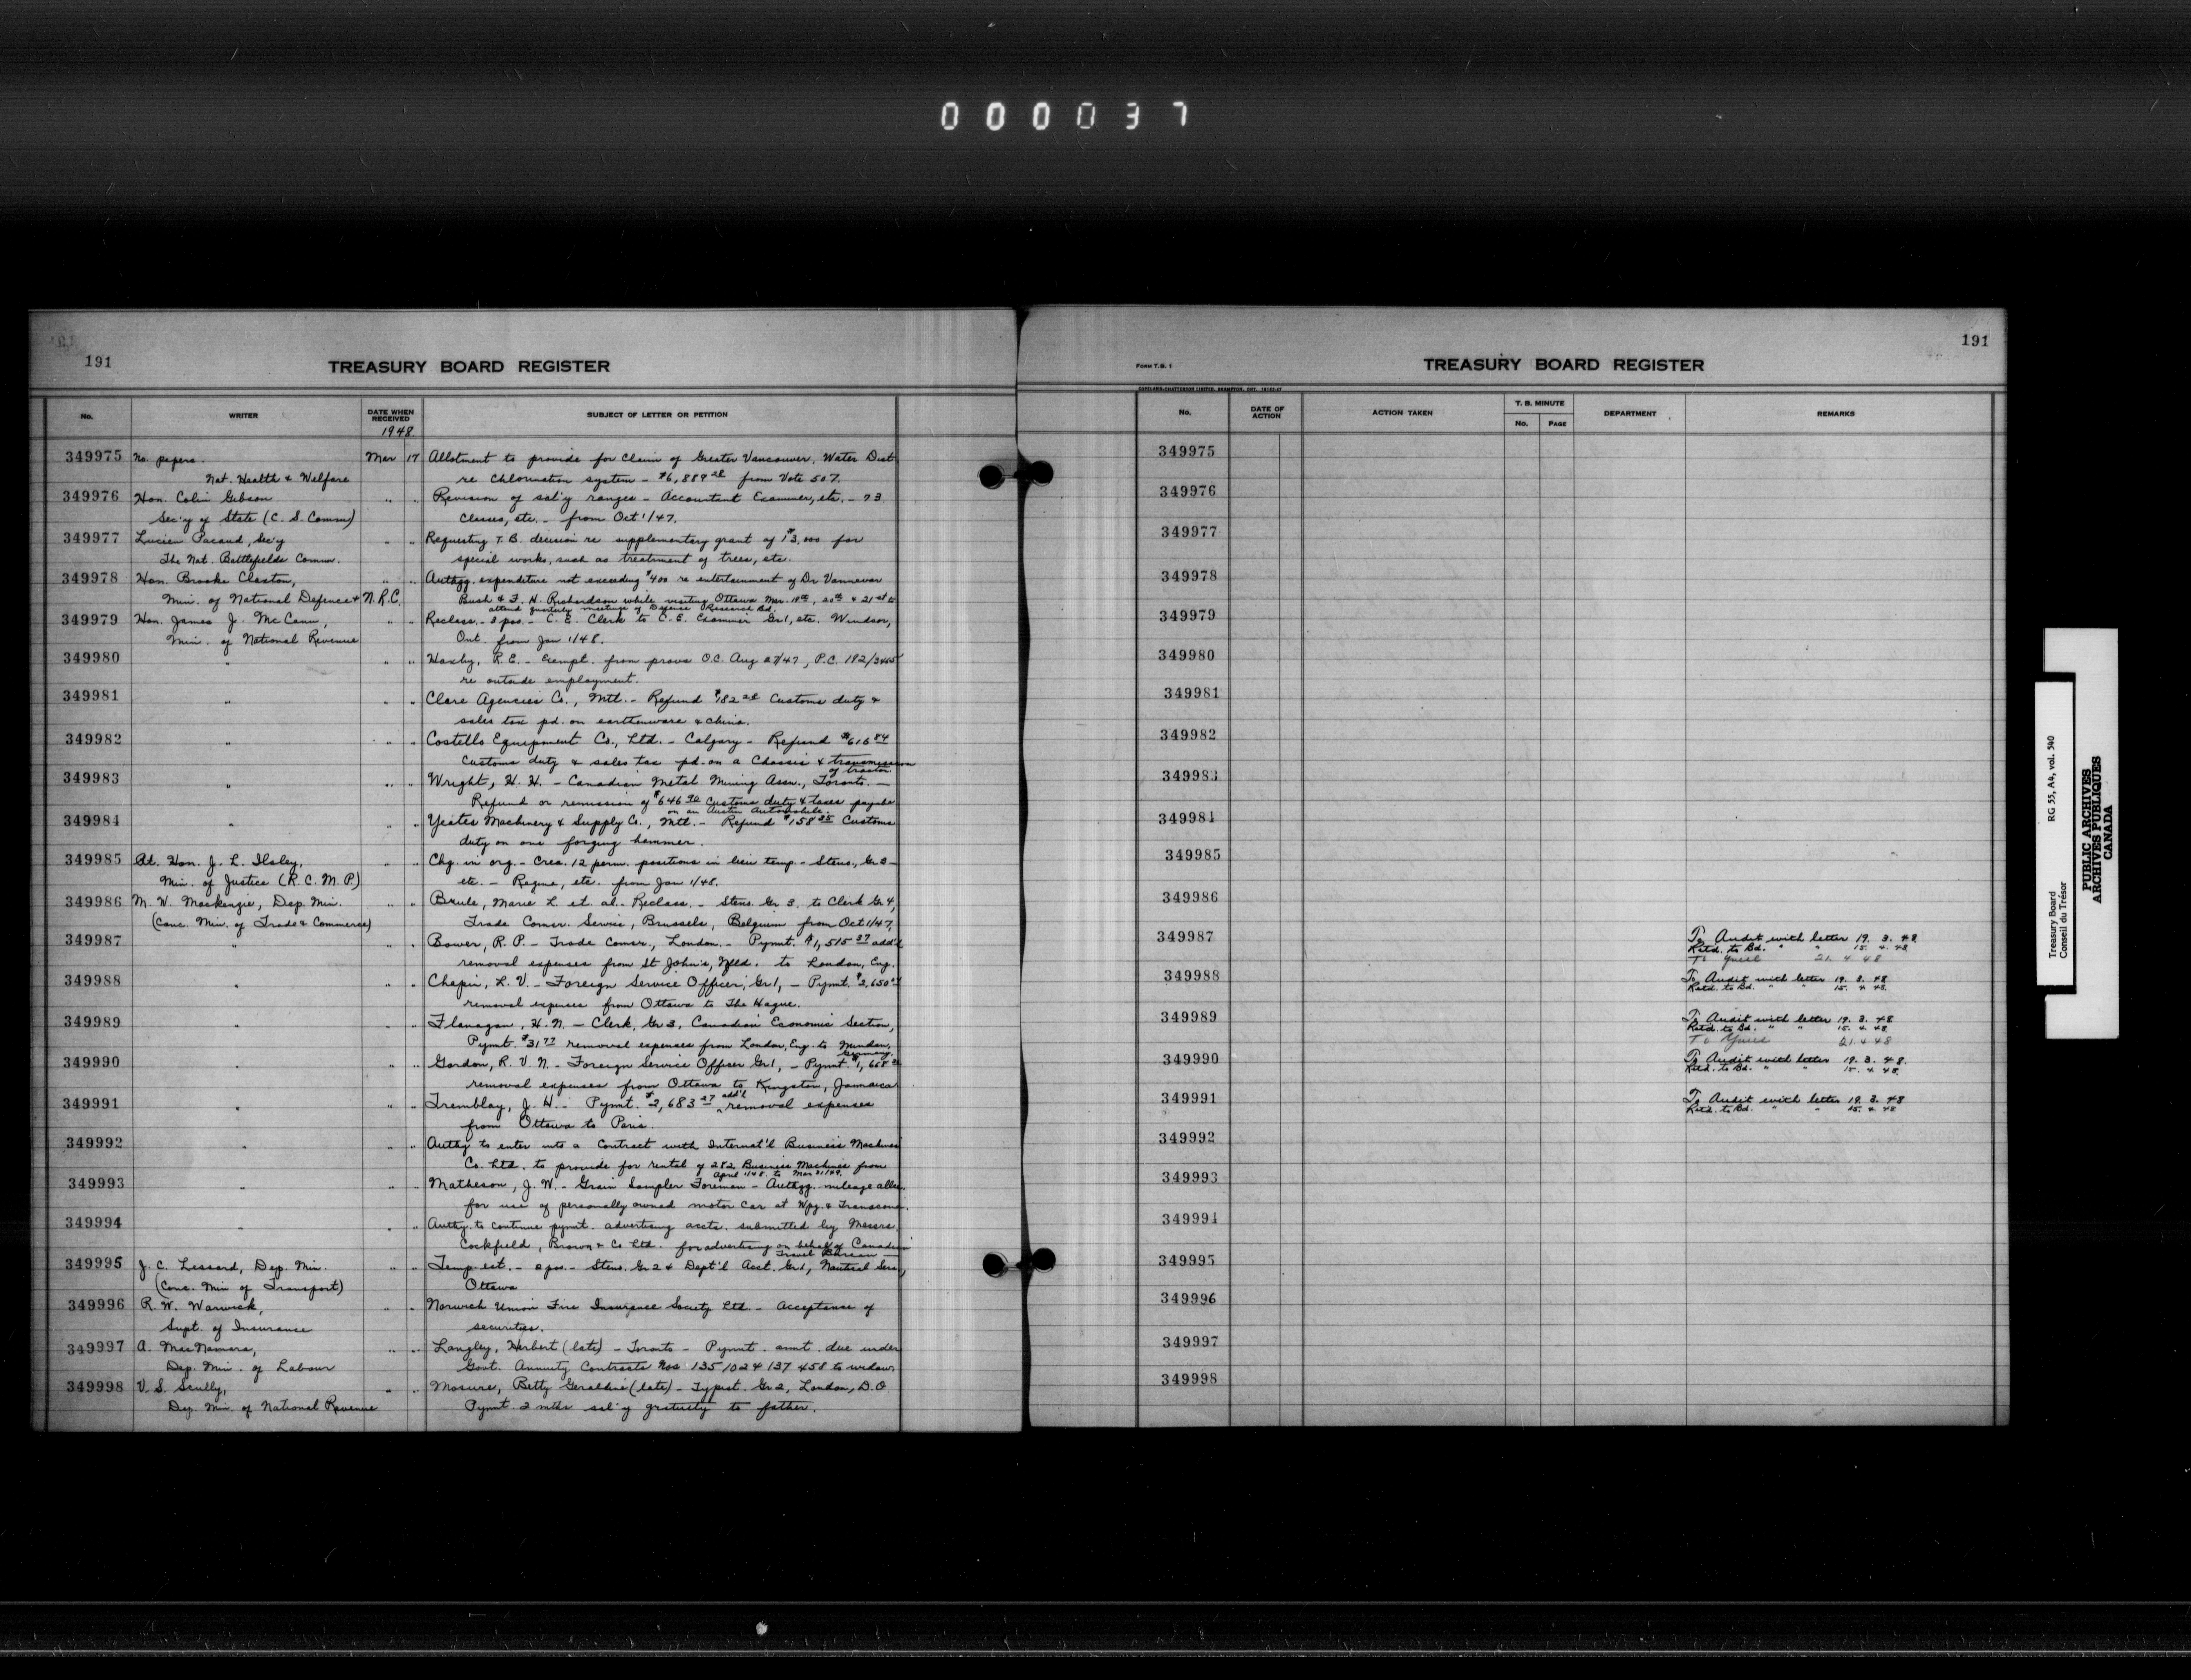 000037
191
TREASURY BOARD REGISTER
No.
WRITER
DATE WHEN RECEIVED
SUBJECT OF LETTER OR PETITION
1948.
349975 No papers. Mar 17 Allotment to provide for Claim of Greater Vancouver, Water Dist
Nat. Health & Welfare re Chlorination system - $6,889 28 from Vote 507.
349976 Hon. Colin Gibson " " Revision of sal'y ranges - Accountant Examiner, etc. - 73
Sec'y of State (C. S. Comm) Classes, etc. - from Oct 1/47.
349977 Lucien Pacaud, Sec'y " " Requesting T.B. decision re supplementary grant of $13,000 for
The Nat. Battlefields Comm. special works, such as treatment of trees, etc.
349978 Hon. Brooke Claxton, " " Authgg. expenditure not exceeding $400 re entertainment of Dr Vannevar
Min. of National Defence & N.R.C. Bush & F. H. Richardson while visiting Ottawa Mar. 19th, 20th & 21st to
attend quarterly meetings of Defence Research Bd.
349979 Hon. James J. McCann, " " Reclass. - 3 pos. - C. E. Clerk to C. E. Examiner Gr 1, etc. Windsor,
Min. of National Revenue Ont. from Jan 1/48.
349980 " " " Haxby, R.E. - Exempt. from provs O.C. Aug 27/47, P.C. 192/3445
re outside employment.
349981 " " " Clare Agencies Co., Mtl. - Refund $182 28 Customs duty &
sales tax pd. on earthenware & china.
349982 " " " Costello Equipment Co., Ltd. - Calgary - Refund $616 84
Customs duty & sales tax pd. on a Chassis & transmission
of tractor.
349983 " " " Wright, H. H. - Canadian Metal Mining Assn., Toronto. -
Refund or remission of $646 90 Customs duty & taxes payable
on an Austin Automobile.
349984 " " " Yeates Machinery & Supply Co., Mtl. - Refund $158 25 Customs
duty on one forging hammer.
349985 Rt. Hon. J. L. Ilsley, " " Chg. in org. - Crea. 12 perm. positions in lieu temp. - Steno., Gr 3 -
Min. of Justice (R. C. M. P.) etc. - Regina, etc. from Jan 1/48.
349986 M. W. Mackenzie, Dep. Min. " " Brule, Marie L. et. al. - Reclass. - Steno. Gr 3. to Clerk Gr 4,
(Conc. Min. of Trade & Commerce) Trade Comsr. Service, Brussels, Belgium from Oct 1/47,
349987 " " " Bower, R. P. - Trade Comsr., London. - Pymt. $1,515 37 add'l
removal expenses from St John's, Nfld. to London, Eng.
349988 " " " Chapin, L. V. - Foreign Service Officer, Gr 1, - Pymt. $2,650
removal expenses from Ottawa to The Hague.
349989 " " " Flanagan, H. N. - Clerk, Gr 3, Canadian Economic Section,
Pymt. $31 77 removal expenses from London, Eng. to Minden,
Germany.
349990 " " " Gordon, R. V. N. - Foreign Service Officer Gr 1, - Pymt. $1,668
removal expenses from Ottawa to Kingston, Jamaica
349991 " " " Tremblay, J. H. - Pymt. $2,683 27 add'l removal expenses
from Ottawa to Paris.
349992 " " " Authy to enter into a Contract with Internat'l Business Machines
Co. Ltd. to provide for rental of 282 Business Machines from
April 1/48 to Mar 31/49.
349993 " " " Matheson, J. W. - Grain Sampler Foreman - Authgg. mileage allce.
for use of personally owned motor car at Wpg. & Transcona.
349994 " " " Authy. to continue pymt. advertising accts. submitted by Messrs.
Cockfield, Brown & Co Ltd. for advertising on behalf of Canadian
Travel Bureau -
349995 J. C. Lessard, Dep. Min. " " Temp. est. - 2 pos. - Steno. Gr 2 & Dept'l Acct. Gr 1, Nautical Serv.,
(Conc. Min of Transport) Ottawa
349996 R. W. Warwick, " " Norwich Union Fire Insurance Society Ltd. - Acceptance of
Supt. of Insurance securities.
349997 A. MacNamara, " " Langley, Herbert (late) - Toronto - Pymt. amt. due under
Dep. Min. of Labour Govt. Annuity Contracts Nos 135102 & 137 458 to widow.
349998 V. S. Scully, " " Mosure, Betty Geraldine (late) - Typist. Gr 2, London, D.O.
Dep. Min. of National Revenue Pymt. 2 mths sal'y gratuity to father.
191
FORM T.B. 1
TREASURY BOARD REGISTER
No.
DATE OF ACTION
ACTION TAKEN
T. B. MINUTE
No.
PAGE
DEPARTMENT
REMARKS
349975
349976
349977
349978
349979
349980
349981
349982
349983
349984
349985
349986
349987 To Audit with letter 19. 3. 48
Retd. to Bd. " 15. 4. 48
21. 4. 48
349988 To Audit with letter 19. 3. 48
Retd. to Bd. " " 15. 4. 48.
349989 To Audit with letter 19. 3. 48
Retd. to Bd. " " 15. 4. 48.
21. 4. 48
349990 To Audit with letter 19. 3. 48.
Retd. to Bd. " " 15. 4. 48.
349991 To Audit with letter 19. 3. 48
Retd. to Bd. " " 15. 4. 48.
349992
349993
349994
349995
349996
349997
349998
Treasury Board
Conseil du Trésor
RG 55, A4, vol. 540
PUBLIC ARCHIVES
ARCHIVES PUBLIQUES
CANADA